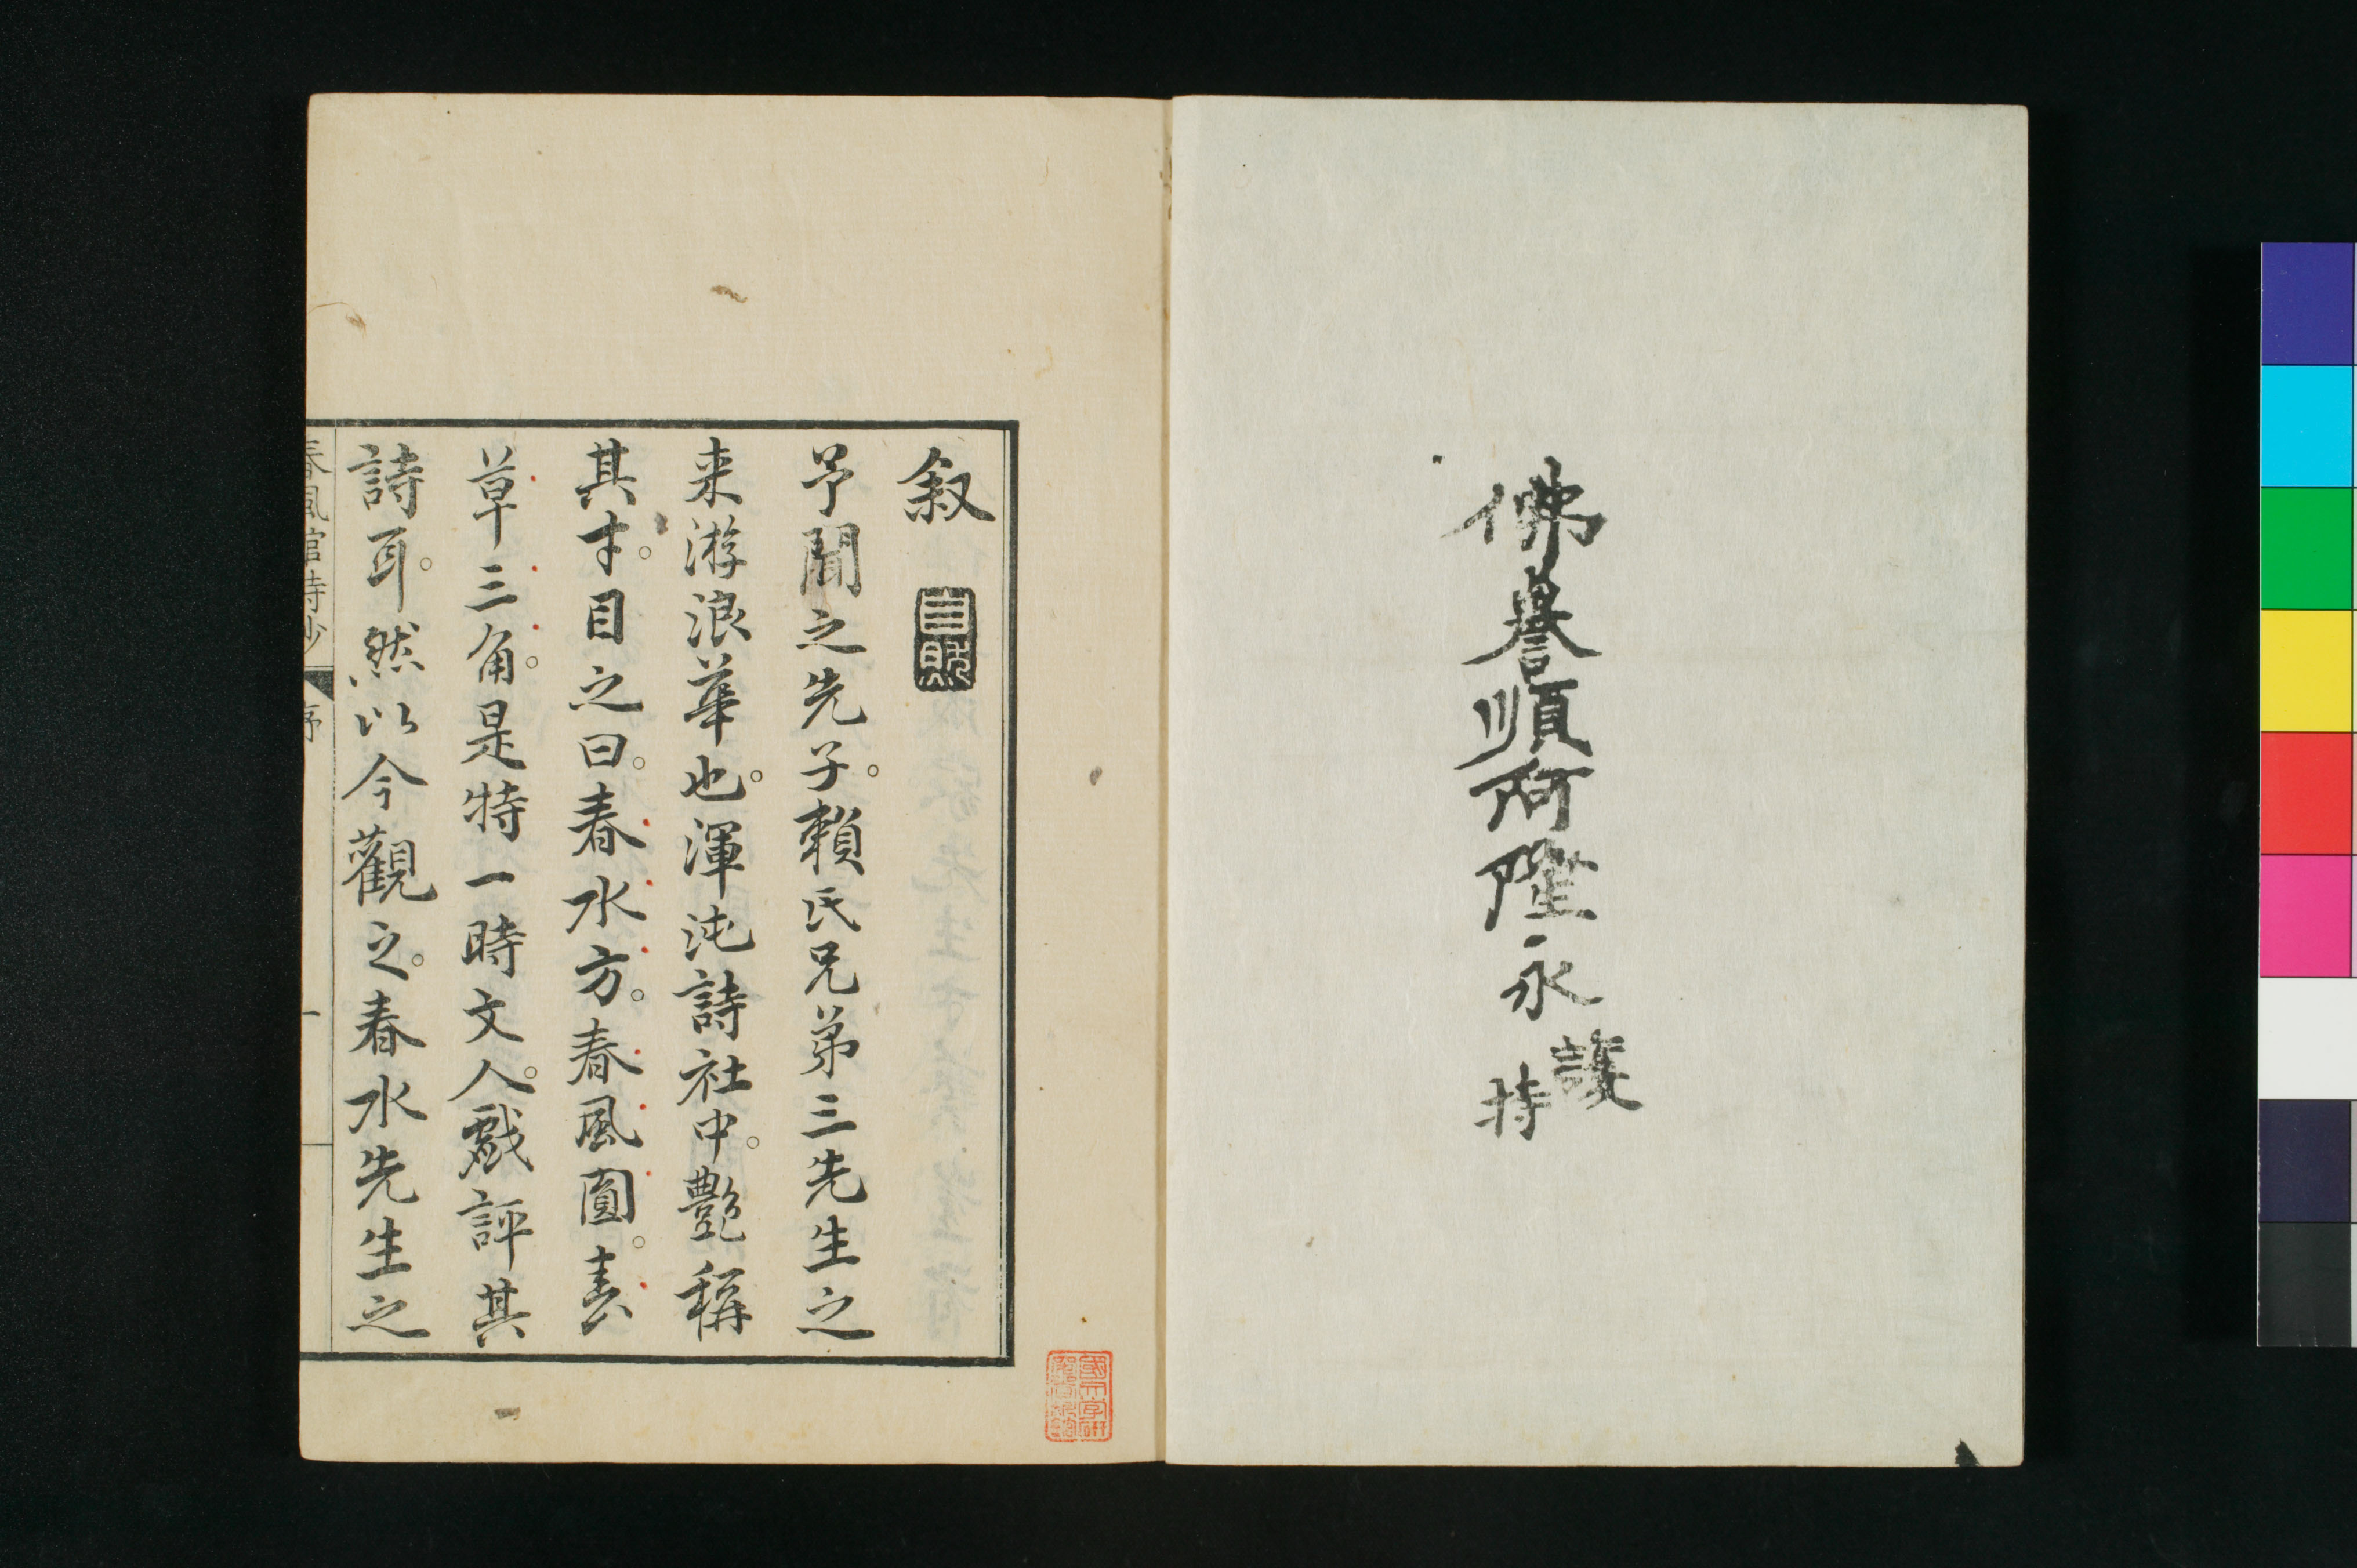 佛譽順阿隆永
護
持
叙
予聞之先子。賴氏兄弟三先生之
来游浪華也。渾沌詩社中。艷稱
其才。目之曰。春水方。春風圓。春
草三角。是特一時文人。戲評其
詩耳。然以今觀之。春水先生之
春風館詩鈔
序
一